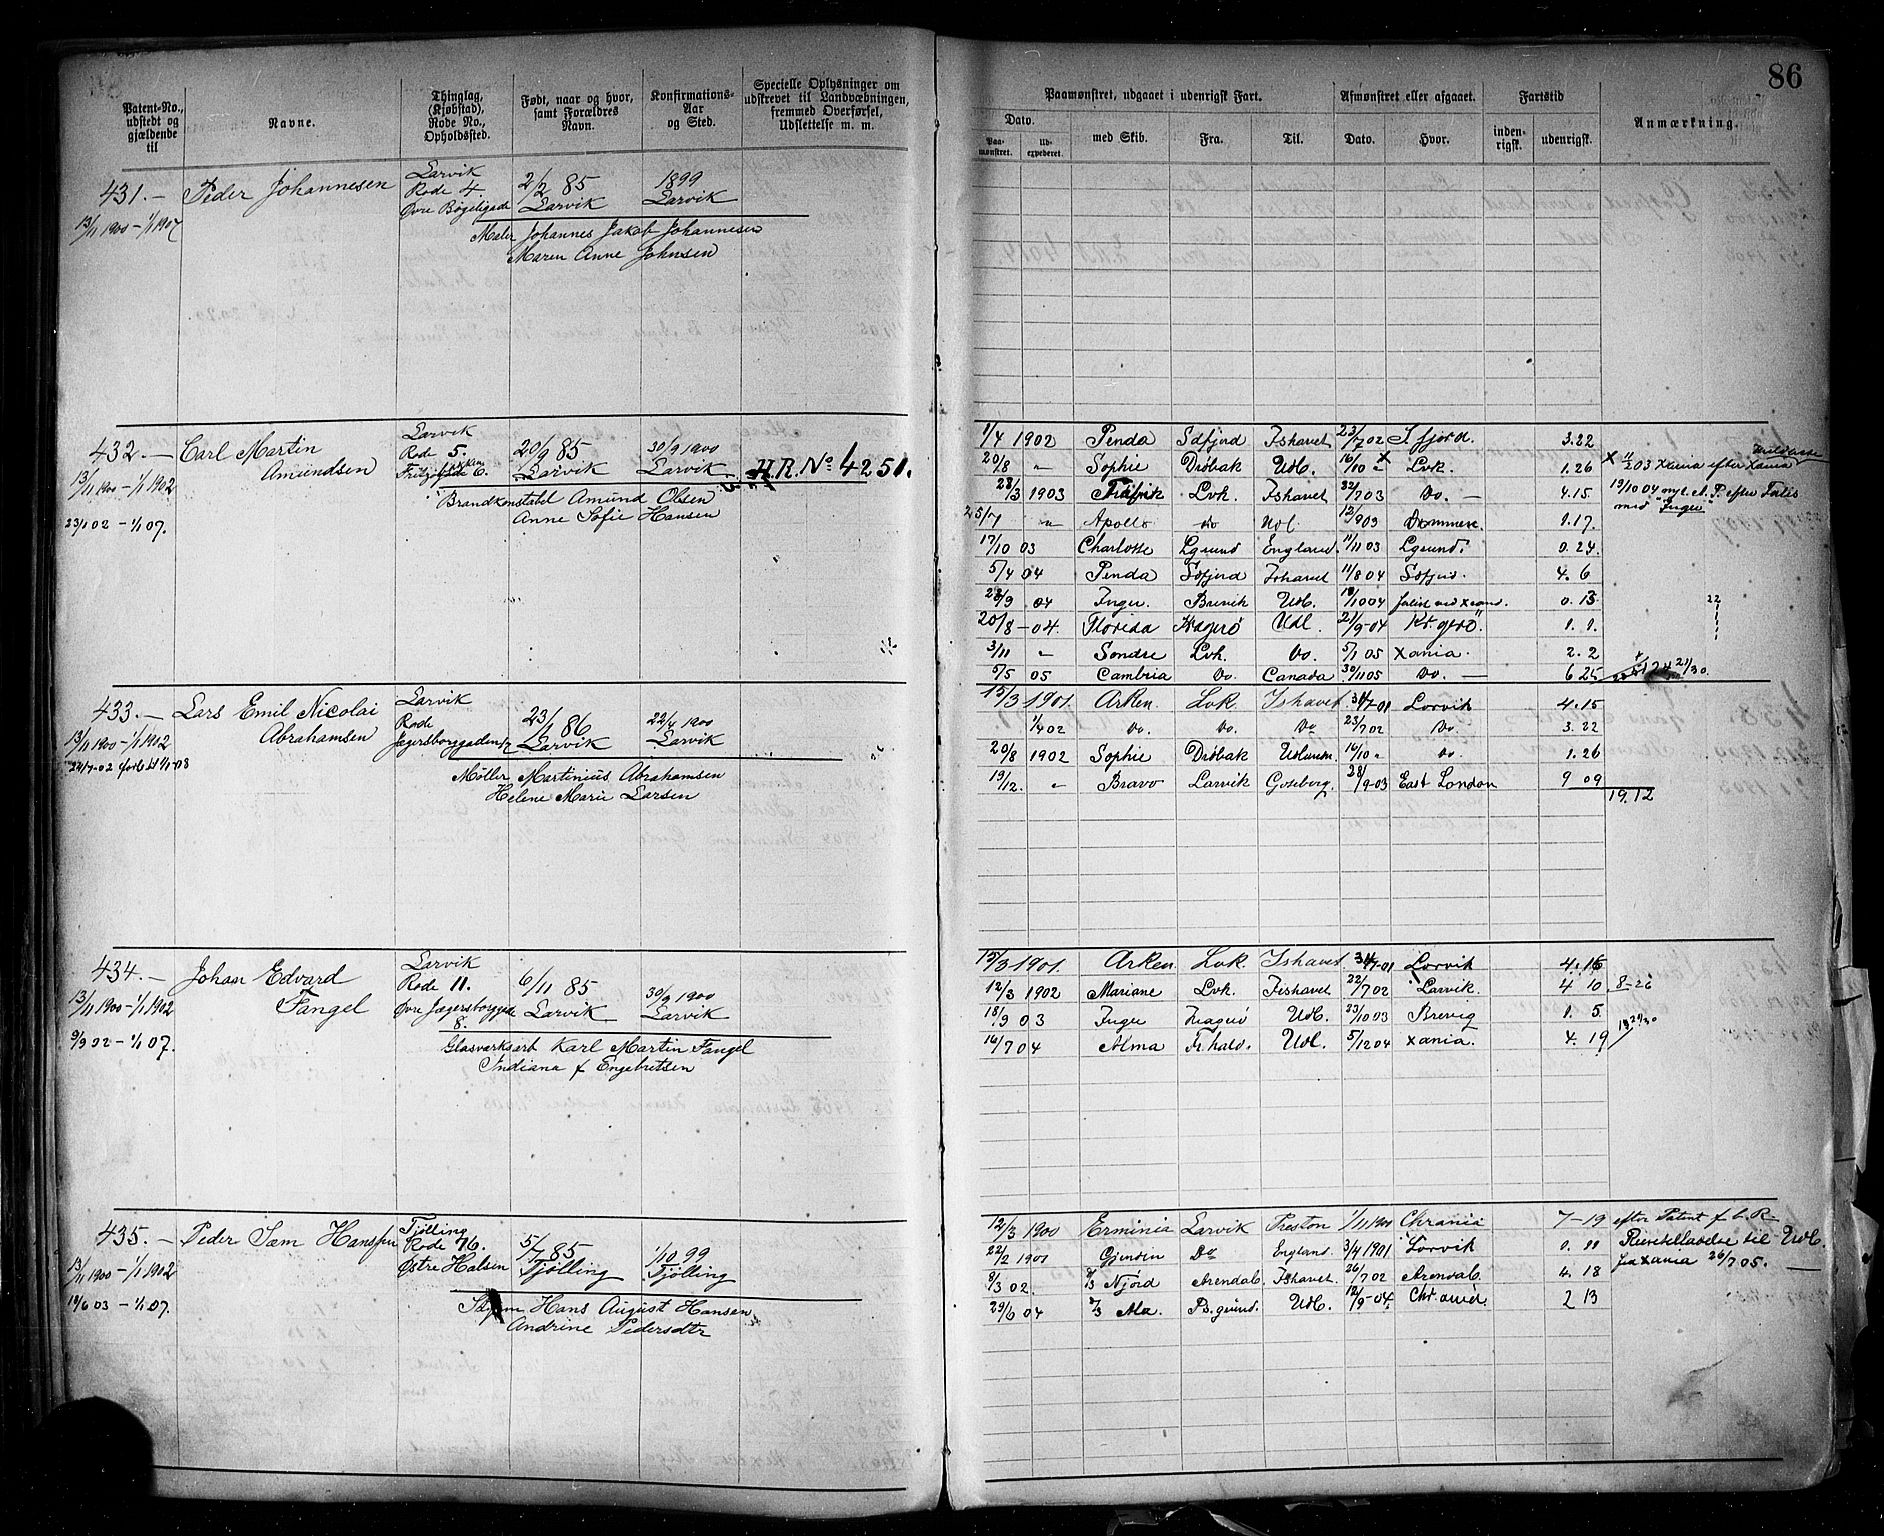 86
Patent-No., udstedt og gjældende til
Navne.
Thinglag, (Kjøbstad), Rode No., Opholdssted.
Født, naar og hvor, samt Forældres Navn.
Konfirmations-Aar og Sted.
Specielle Oplysninger om udskrevet til Landvæbningen, fremmed Overførsel, Udslettelse m. m.
Paamønstret, udgaaet i udenrigsk Fart.
Afmønstret eller afgaaet.
Fartstid
Anmærkning.
Dato.
Paa-mønstret.
Ud-expederet.
med Skib.
Fra.
Til.
Dato.
Hvor.
inden-rigsk.
udenrigsk.
431. - Peder Johannesen Larvik Rode 4. Øvre Bøgeligade 2/2 85 Larvik 1899 Larvik
13/11 1900 - 1/1 1907
Maler Johannes Jakob Johannesen
Maren Anne Johnsen
432. - Carl Martin Amundsen Larvik Rode 5. 20/9 85 Larvik 30/9 1900 Larvik H.R. No 4251.
13/11 1900 - 1/1 1902
23/1 02 - 1/1 07.
Brandkonstabel Amund Olsen
Anne Sofie Hansen
1/4 1902 Penda Sdfjord Ishavet 23/7 02 S. fjord. 3.22
20/8 " Sophie Drøbak Udl. 16/10 " Lvk. 1.26
28/3 1903 Lvk. Ishavet 7 03 Do. - 4.15
25/7 " Apollo do Udl. 12/9 03 1.17.
17/10 03 Charlotte Lgsund England. 11/11 03 Lgsund. 0.24.
5/4 04 Penda Sdfjord Ishavet 11/8 04 Sdfjord. 4.6
28/9 04 Inger. Brevik Udl. 18/10 04 0.13
20/8 - 04. Florida Kragerø Udl. 21/9 - 04 Kr.gerø. 1.1.
3/11 " Sondre Lvk. Do. 5/1 05 Xania. 2.2
5/5 05 Cambria Do Canada 30/11 05 Do. - 6 25
X 11/2 03 Xania efter Xania
19/10 04 myt. A.P. efter Forlis med "Inger"
433. - Lars Emil Nicolai Abrahamsen Larvik Rode Jægersborggaden 23/1 86 Larvik 22/4 1900 Larvik
13/11 1900 - 1/1 1902
24/7-02 forl. til 1/1-08
Møller Martinius Abrahamsen
Helene Marie Larsen
15/3 1901. Arken. Lvk. Ishavet 31/7-01 Larvik 4.15
1/4 02 Do. Do. Do 23/7 02 Do. 3.22
20/8 1902 Sophie Drøbak Udlandet 16/10 " Do. 1.26
19/12. " Bravo Larvik Goteborg. 28/9-03 East London 9 09
19.12
434. - Johan Edvard Fangel Larvik Rode 11. Øvre Jægersborggade 8. 6/11 85 Larvik 30/9 1900 Larvik
13/11 1900 - 1/1 1902
9/9 02 - 1/1 07.
Glasværksarb Karl Martin Fangel
Indiana f Engebretsen
15/3 1901. Arken. Lvk. Ishavet 31/7-01 Larvik 4.15
12/3 1902 Mariane Lvk. Ishavet 22/7 02 Larvik. 4 10 8-26
18/9 03 Inger Kragerø Udl. 23/10 03 Brevig 1.5
16/7 04 Alma Fr.hald. Udl. 5/12 04 Xania. 4.19
435. - Peder Sam Hansen Tjølling Rode 76. Østre Halsen 5/7 85 Tjølling 1/10 99 Tjølling
13/11 1900 - 1/1 1902
19/6 03 - 1/1 07.
Hans August Hansen
Andrine Pedersdtr
12/3 1900 Erminia Larvik Preston 1/11 1900 Chrania 7-19
22/2 1901 Gjendin Do England. 3/4 1901 Larvik 0.11
8/3 02. Njørd Arendal. Ishavet. 26/7 02 Arendal. 4.18
29/6 04 Ala P.sgrund. Udl. 12/9-04. Chr.and. 2 13
efter Patent f. L. R.
Reisetilladelse til Udl.
fra Xania 26/7 05.